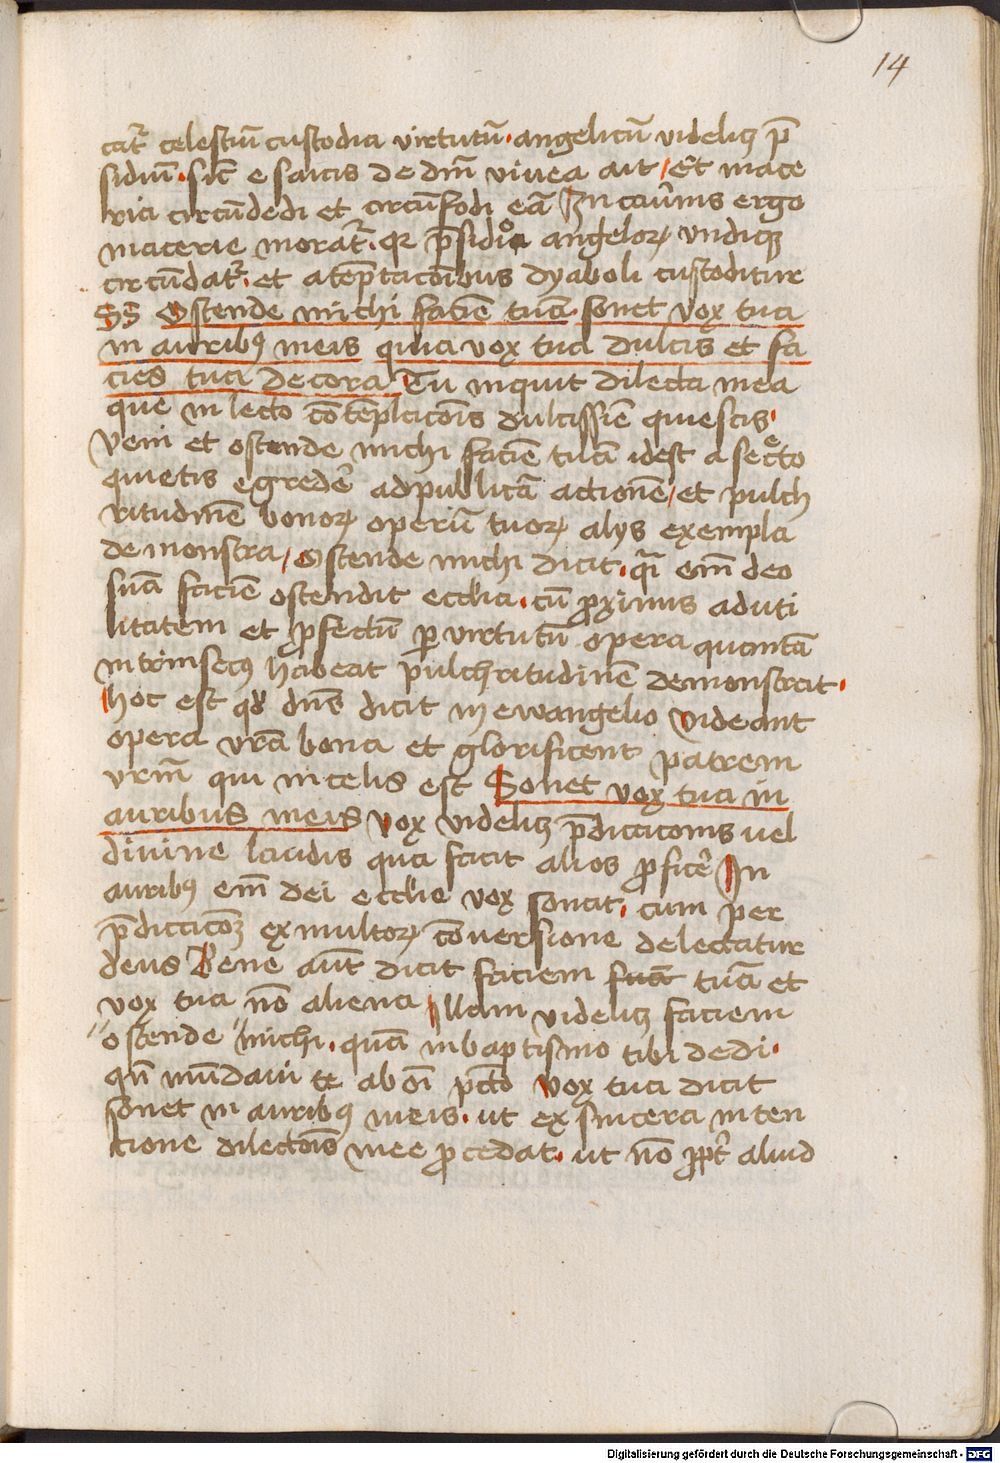 14
catr̄ celestiū custodia virtutū · angelicū videlicꝫ p̄
sidiū · sic̄ esaias de dn̄i vinea ait / Et mace
ria circūdedi et circūfodi eā In cau̾nis ergo
macerie moratr̄ · qr̄ p̄sidio angeloꝝ vndiqꝫ
circūdatr̄ · et a tēptac̄oībus dyaboli custoditur
Ostende michi faciē tuā · sonet vox tua
in auribꝰ meis quia vox tua dulcis et fa
cies tua decora Tu inquit dilecta mea
que in lecto cōtēplac̄ois dulcissīe quiescis ·
veni et ostende michi faciē tuā idest a sec̄to
quietis egredē ad publicā actionē / et pulch
ritudinē bonoꝝ operū tuoꝝ alys exempla
demonstra / Ostende michi dicit · qꝛ em̄ deo
suā faciē ostendit ecclīa · cū ꝓximis ad uti
litatem et ꝓfectū ꝑ virtutū opera quantā
intrinsecꝰ habeat pulchritudinē demonstrat ·
hoc est qđ dn̄s dicit in ewangelio videant
opera vr̄a bona et glorificent patrem
vrm̄ qui in celis est Sonet vox tua in
auribus meis vox videlicꝫ p̄dicac̄onis uel
diuine laudis qua facit alios ꝓficē In
auribꝰ em̄ dei ecclīe vox sonat · cum per
p̄dicac̄oꝫ ex multoꝝ cōuersione delectatur
deus Bene aūt dicit faciem tuā et
vox tua nō aliena Illam videlicꝫ faciem
"ostende "michi · quā in baptismo tibi dedi ·
qn̄ mūdaui te ab oī pcc̄to vox tua dicit
sonet in auribꝰ meis · ut ex sincera inten
tione dilecōis mee ꝓcedat · ut nō ꝓpt̄ aliud
Digitalisierung gefördert durch die Deutsche Forschungsgemeinschaft - DFG